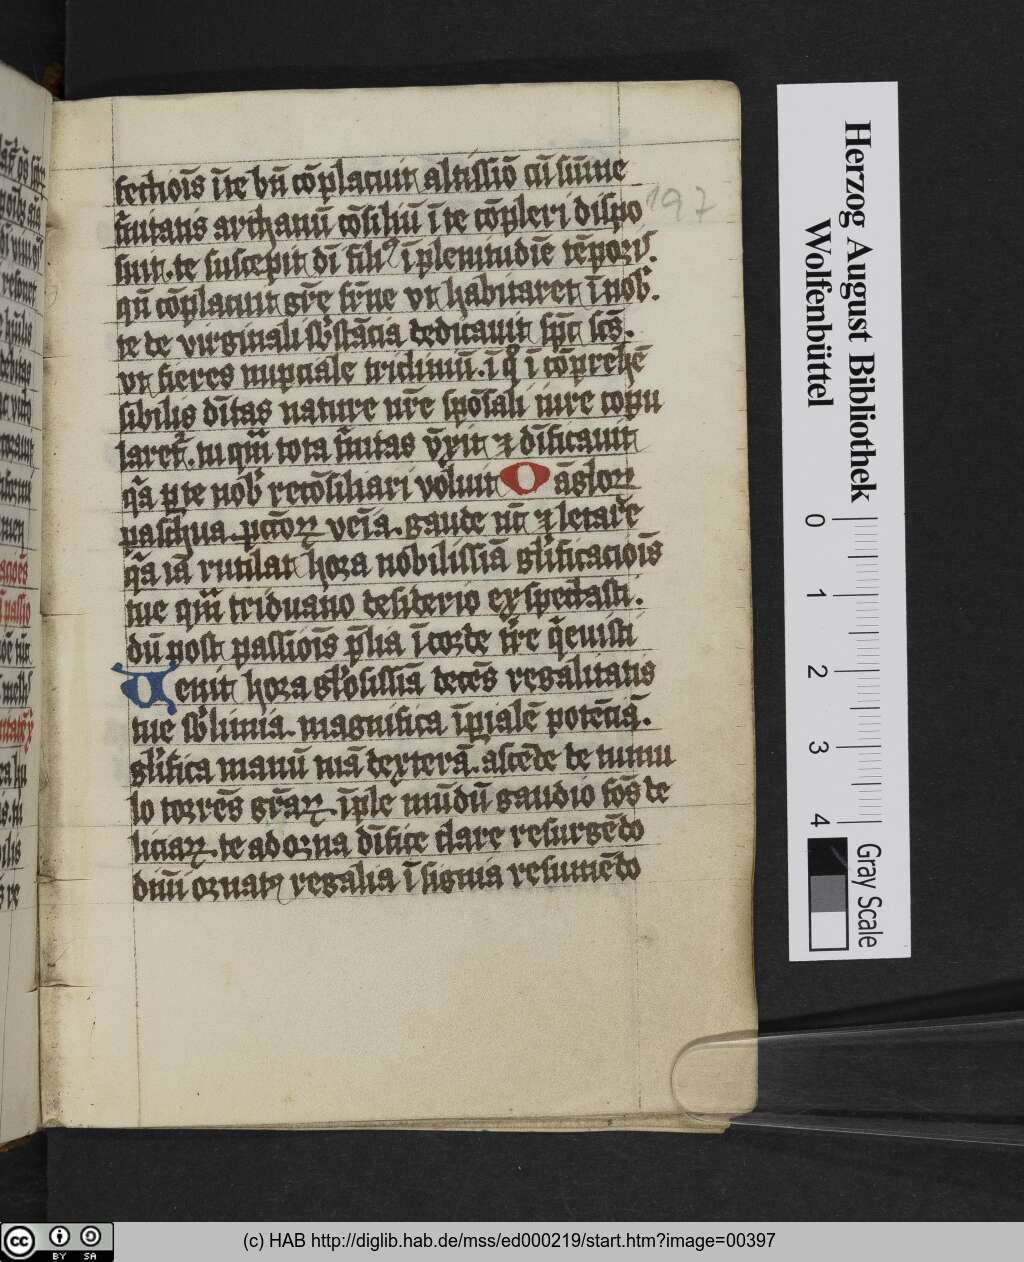 fectiōis ī te bn̄ cōplacuit altissīo cū sūme
t̄nitatis archanū cōsiliū ī te cōpleri dispo
suit. te suscepit dī filiꝰ ī plenitudīe tēporis.
qn̄ cōplacuit gr̄e st̄ne vt habitaret ī nob̄.
te de virginali sb̄stācia dedicauit sp̄c scs̄.
vt fieres nupciale tricliniū. ī qͦ ī cōprehē
sibilis dītas nature nr̄e spōsali iure copu
laret̄. tu qm̄ tota t̄nitas v̄xit ⁊ dīficauit
qͣ ꝑ te nob̄ recōsiliari voluit O āgloꝝ
paschua. pctōꝝ venīa. gaude nc̄ ⁊ letar̄e
qͣ iā rutilat hora nobilissīā gl̄ificaciōis
tue qm̄ triduano desiderio exspectasti.
dū post passiōis p̄lia ī corde tr̄e q̄euisti
Uenit hora gl̄osissīā decēs regalitatis
tue sb̄limia. magnifica īꝑialē potēciā.
gl̄ifica manū tuā dexterā. ascēde de tumu
lo torrēs gr̄aꝝ. īple mūdū gaudio fōs de
liciaꝝ. te adorna dīfice clare resurgēdo
diuī ornatꝰ regalia īsignia resumēdo
197
Herzog August Bibliothek
Wolfenbüttel
0 1 2 3 4
Gray Scale
cc BY SA
(c) HAB http://diglib.hab.de/mss/ed000219/start.htm?image=00397